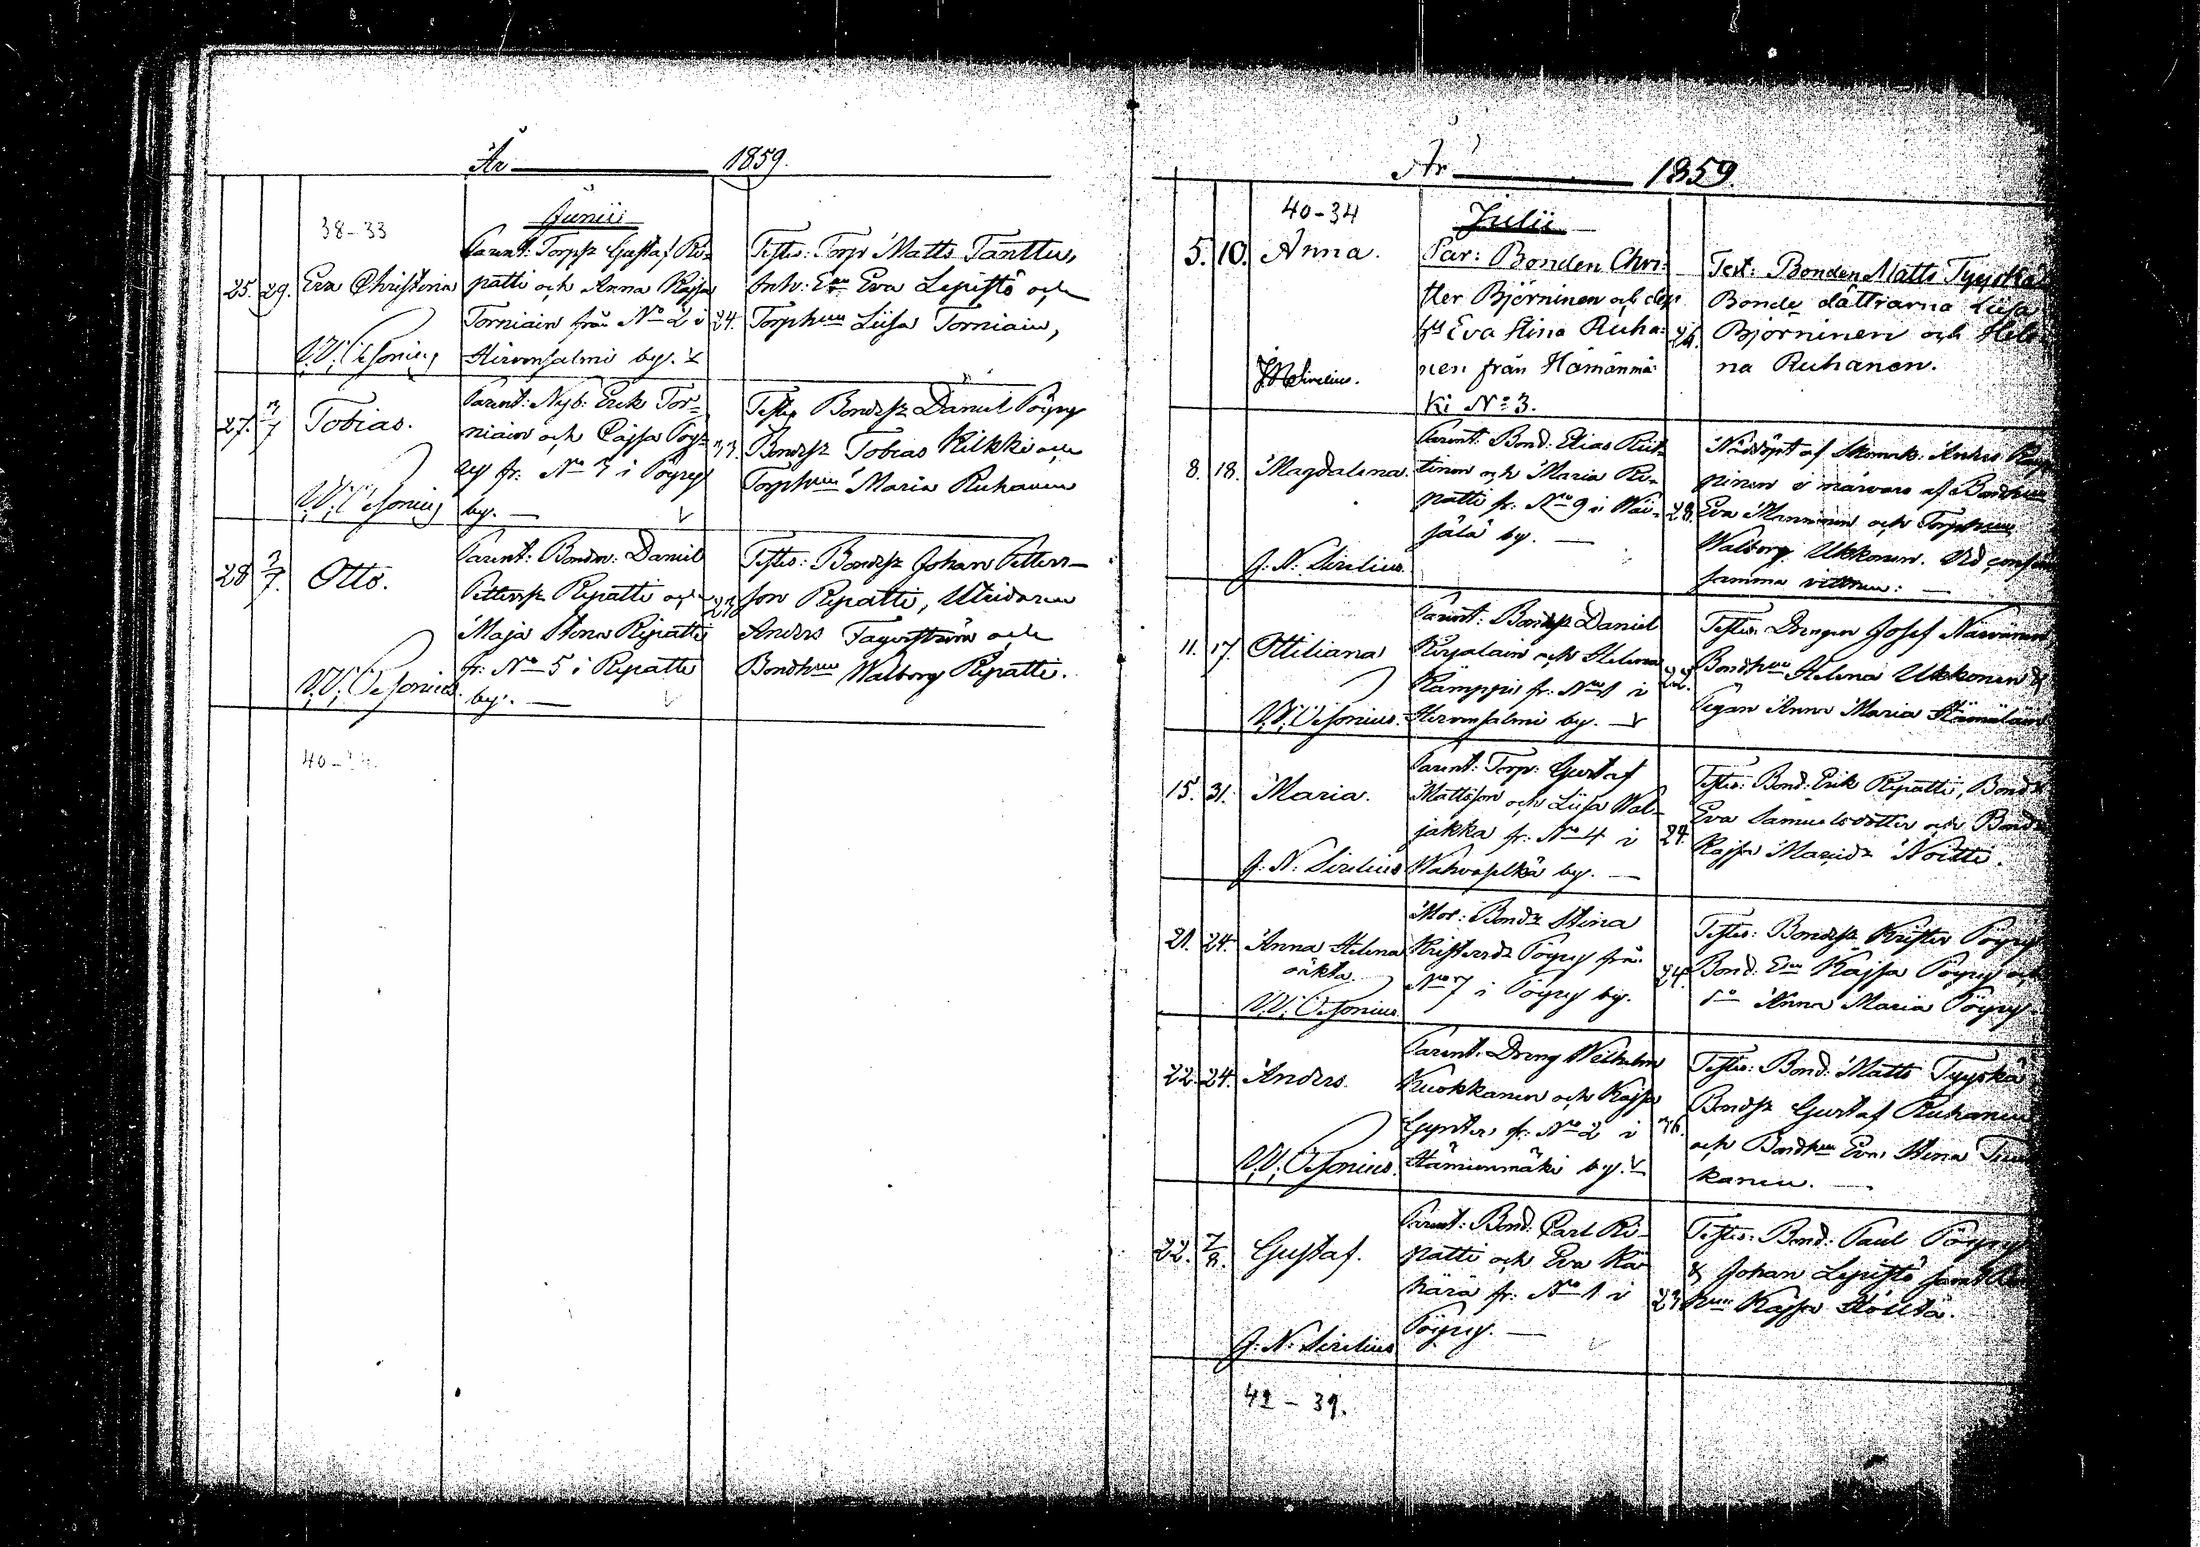 År 1859.
Junii
38-33
25. 29. Eva Christina
V.V. Cesonius
Parent: Torpsr Gustaf Ri-
patti och Anna Kajsa
Torniain från No 2 i
Hirvensalmi by.
24.
Testes: Torp Matts Tanttu,
Enkn Eva Lepistö och
Torphun Liisa Torniain,
27. 3/7 Tobias.
V.V. Cesonius
Parent: Nyb: Erik Tor-
niain och Cajsa Pöy-
ry fr: No 7 i Pöyry
by.
33.
Testes Bondesr Daniel Pöyry
Bondesr Tobias Kilkki och
Torphun Maria Ruhanen
28 3/7. Otto.
V.V. Cesonius.
Parent: Bonden: Daniel
Pettersr Ripatti och
Maja Stena Ripatti
fr: No 5 i Ripatti
by.
23
Testes: Bondesr Johan Petters-
son Ripatti, Utridaren
Anders Fagerström och
Bondhun Walborg Ripatti.
År 1859.
40-34
Julii
5. 10. Anna.
J N Sirelius.
Par: Bonden Chri-
ster Björninen och dess
h. Eva Stina Ruha-
nen från Hämänmä-
ki No 3.
Test: Bonden Matts Tyyskä
Bonde döttrarna Liisa
Björninen och Hele
na Ruhanen.
8. 18. Magdalena.
J. N. Sirelius.
Parent: Bond: Elias Rut-
tinen och Maria Ri-
patti fr: No 9 i Wäi-
sälä by.
28.
Nöddöpt af Skomak: Anders
pinen i närvaro af Bondhun
Eva Manninen och Torphun
Walborg Ukkonen. Vid
samma vittnen:
11. 17. Ottiliana
V.V. Cesonius.
Parent: Bondesr Daniel
Korjalain och Helena
Kämppi fr: No 1 i
Hirvensalmi by.
22.
Testes: Drengen Josef Närvänen
Bondhun Helena Ukkonen &
Pigan Anna Maria Hämäläin
15. 31. Maria.
J. N. Sirelius
Parent: Torp: Gustaf
Mattsson och Liisa Wal-
jakka fr: No 4 i
Wahvaselkä by.
24.
Testes: Bond: Erik Ripatti, Bond
Eva Samuelsdotter och Bond
Kajsa Noitti.
21. 24. Anna Helena
oäkta.
V.V. Cesonius
Mor: Bondr Stina
Kristersdr Pöyry från
No 7 i Pöyry by.
24.
Testes: Bondesr Krister Pöyry
Bond: Kajsa Pöyry och
Anna Maria Pöyry.
22. 24. Anders.
V.V. Cesonius.
Parent: Dreng Wilhelm
Kuokkanen och Kajsa
Gynter fr: No 2 i
Hämienmäki by.
36.
Testes: Bond: Matts Tyyskä
Bondsr Gustaf Ruhanen
och Bondhun Eva Stina
kanen.
22. 7/8. Gustaf.
J. N. Sirelius
Parent: Bond: Carl Ri-
patti och Eva Kä-
härä fr: No 1 i
Pöyry.
Testes: Bond: Paul Pöyry
& Johan Lepistö samt
hun Kajsa Höltta.
42 - 39.